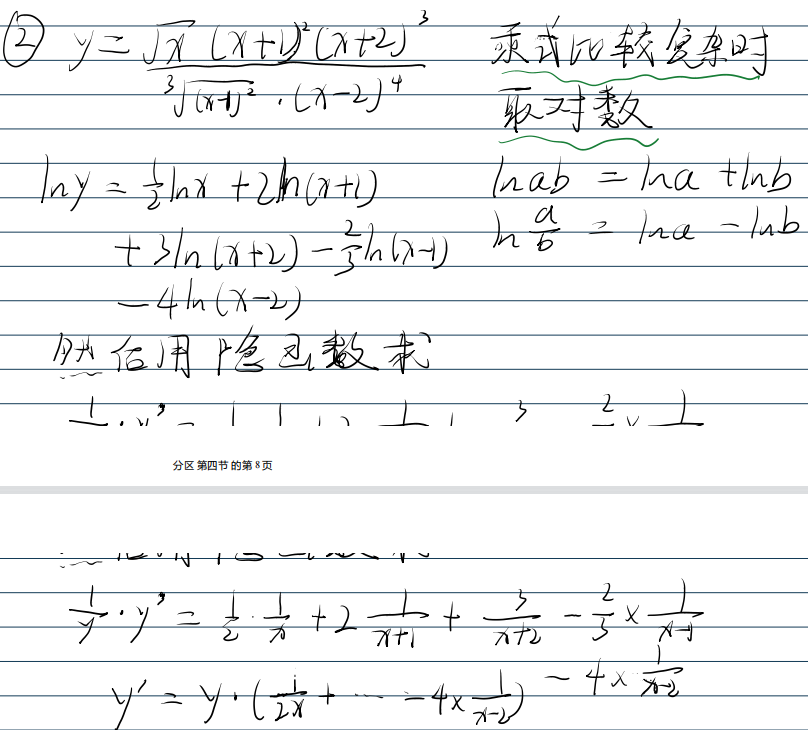 ② y = √x (x+1)²(x+2)³ / ∛(x-1)² · (x-2)⁴
乘式比较复杂时
取对数
ln y = ½ ln x + 2 ln(x+1)
+ 3 ln(x+2) - ⅔ ln(x-1)
- 4 ln(x-2)
ln ab = ln a + ln b
ln a/b = ln a - ln b
然后用隐函数求
分区 第四节 的第 8 页
1/y · y' = 1/2 · 1/x + 2 1/(x+1) + 3/(x+2) - 2/3 × 1/(x-1)
- 4 × 1/(x-2)
y' = y · (1/2x + ... - 4 × 1/(x-2))